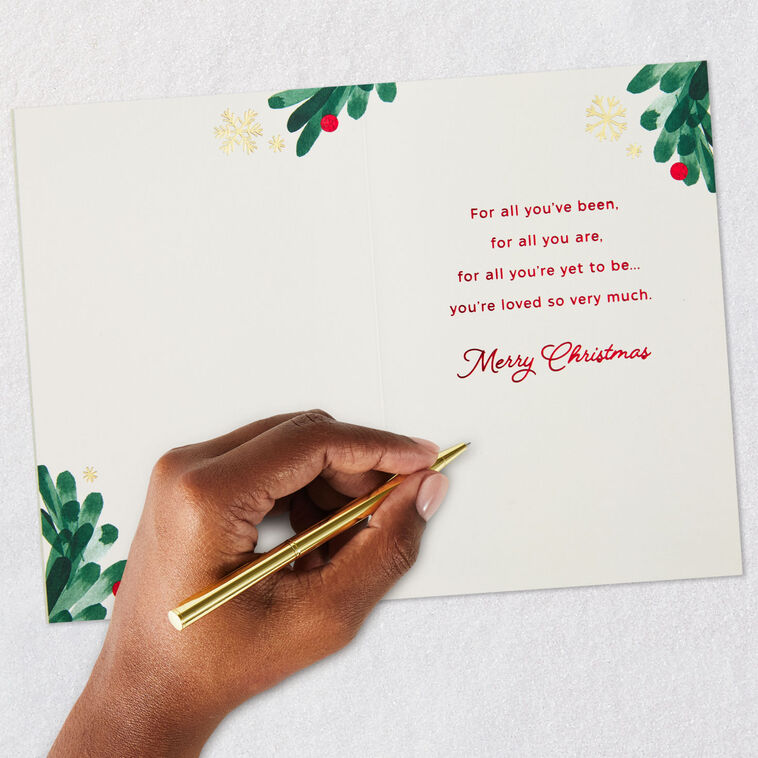 For all you've been,
for all you are,
for all you're yet to be...
you're loved so very much.
Merry Christmas